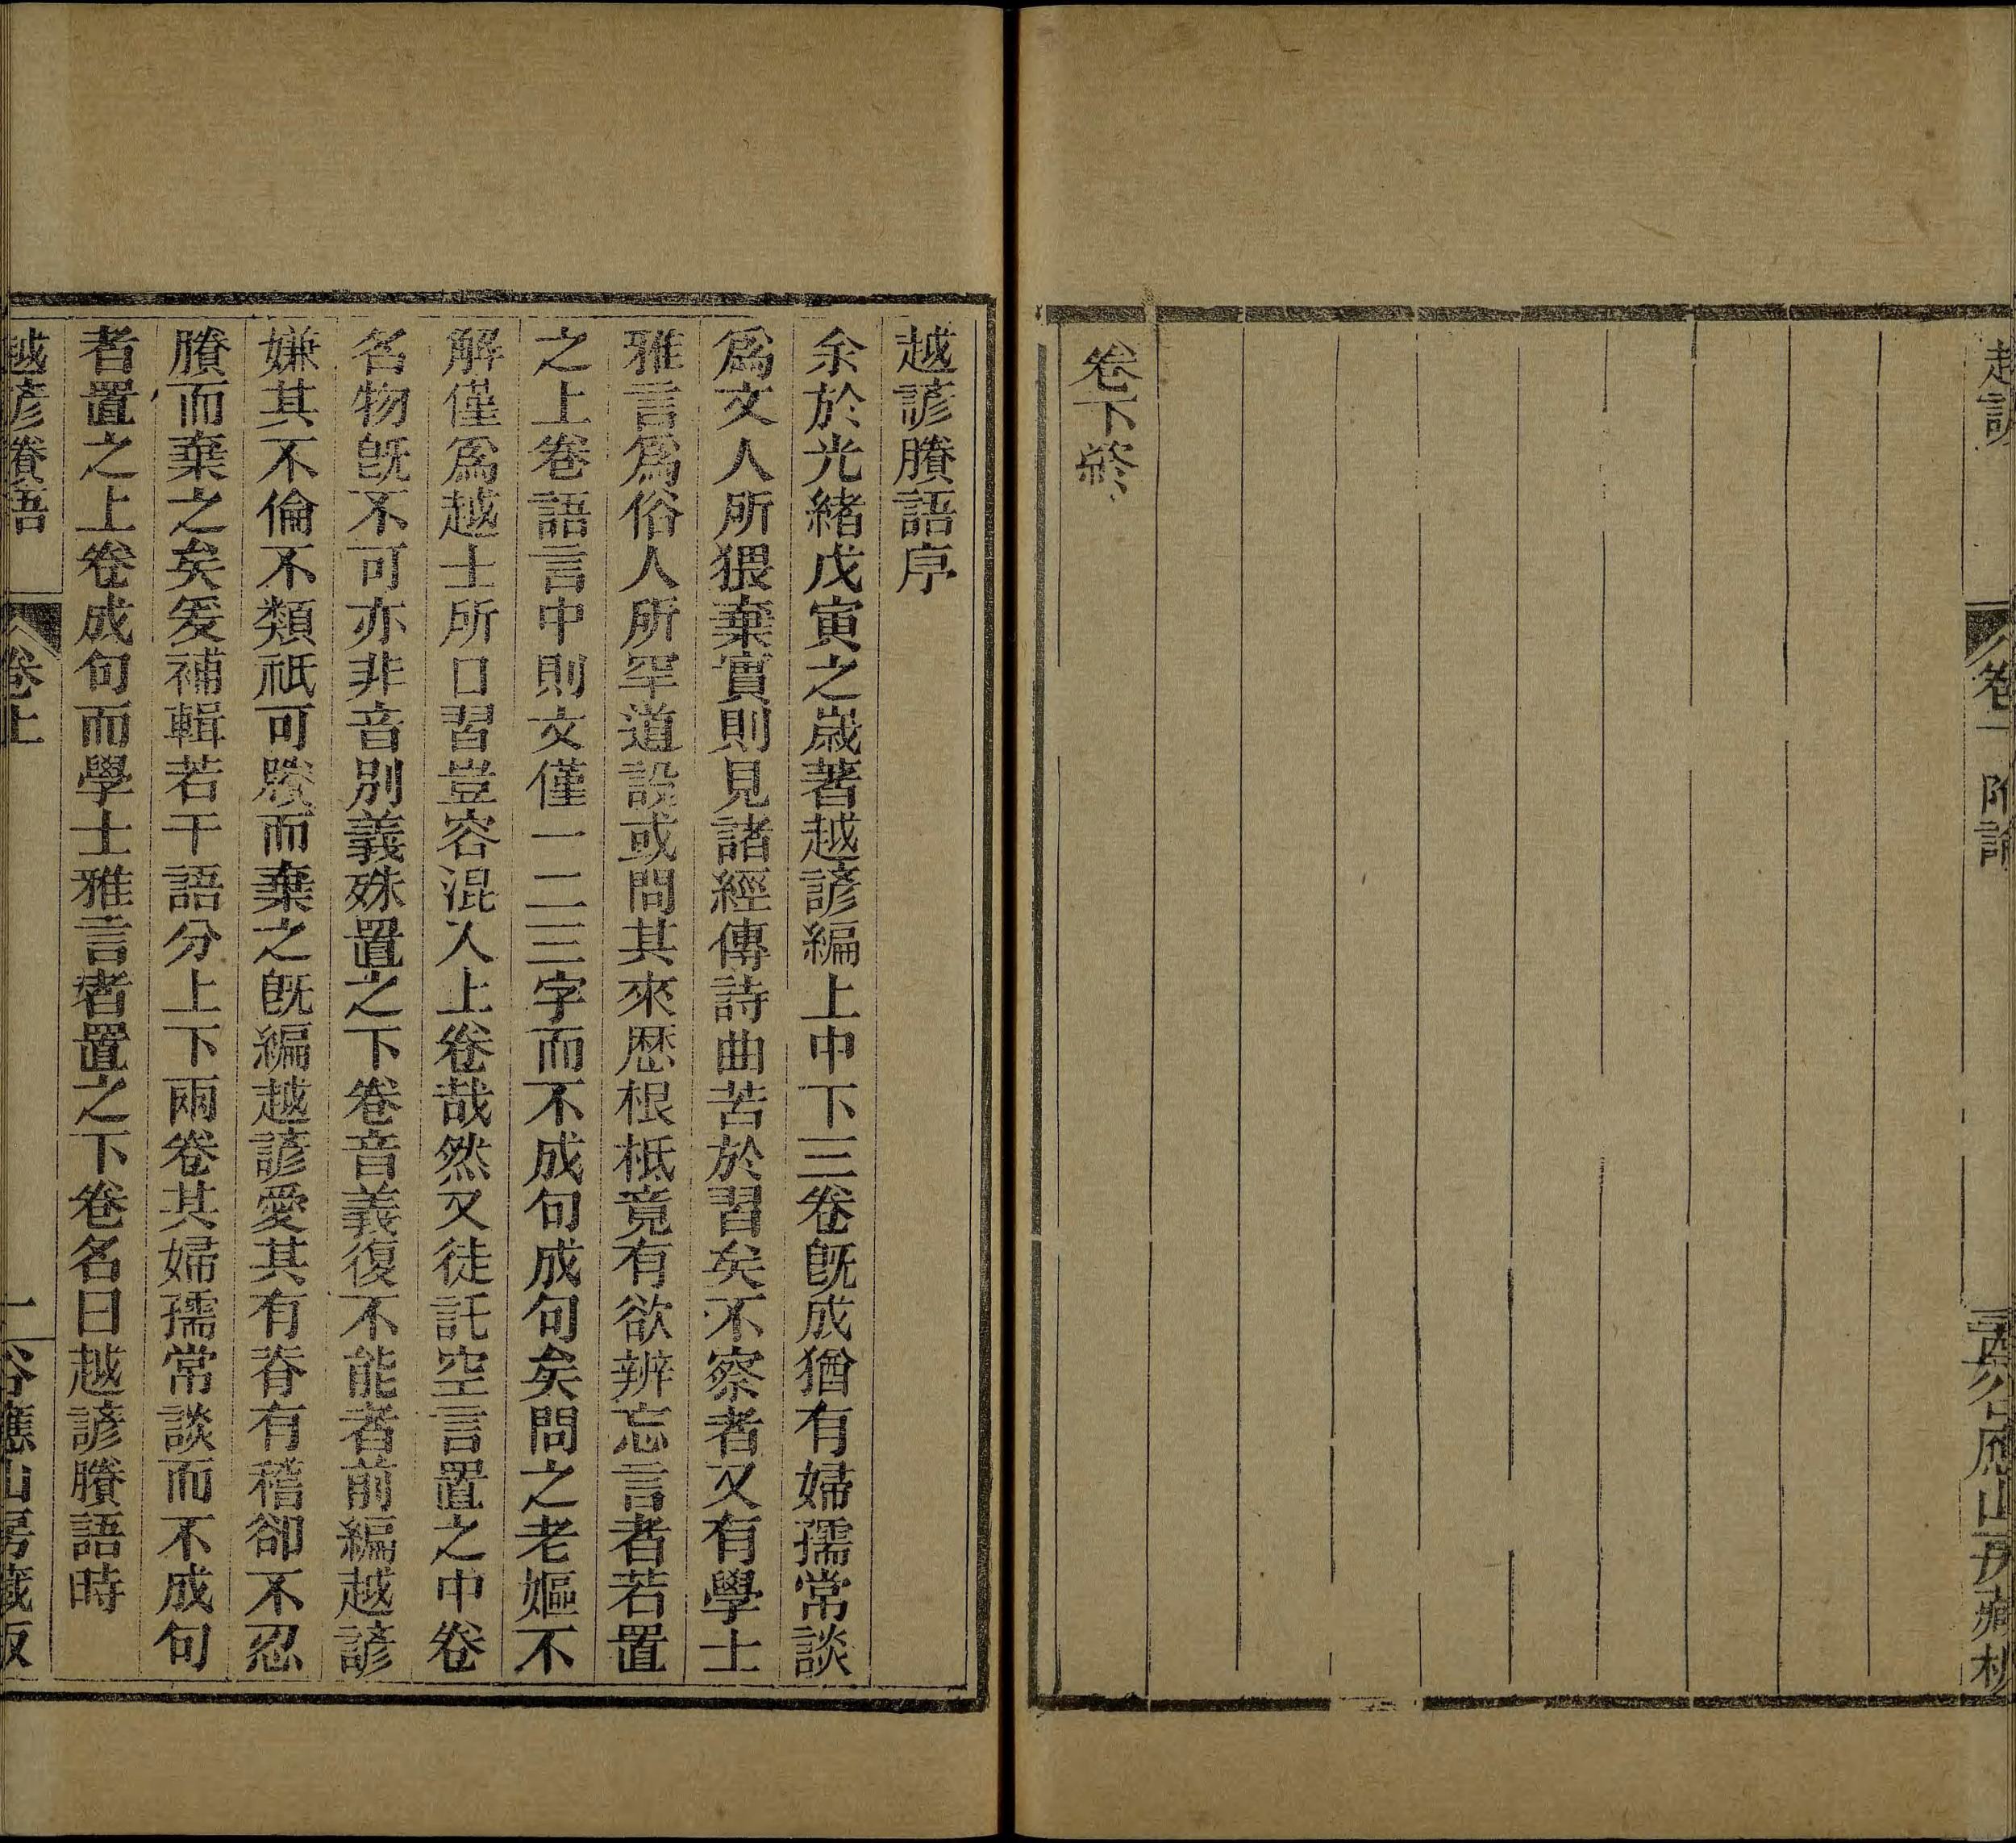 越諺
卷下
附論
谷應山房藏板
卷下終
越諺賸語序
余於光緒戊寅之歲著越諺編上中下三卷旣成猶有婦孺常談
爲文人所猥棄實則見諸經傳詩曲苦於習矣不察者又有學士
雅言爲俗人所罕道設或問其來歷根柢竟有欲辨忘言者若置
之上卷語言中則文僅一二三字而不成句成句矣問之老嫗不
解僅爲越士所口習豈容混入上卷哉然又徒託空言置之中卷
名物旣不可亦非音別義殊置之下卷音義復不能者前編越諺
嫌其不倫不類祇可賸而棄之旣編越諺愛其有脊有稽卻不忍
賸而棄之矣爰補輯若干語分上下兩卷其婦孺常談而不成句
者置之上卷成句而學士雅言者置之下卷名曰越諺賸語時
越諺賸語
卷上
一
谷應山房藏板